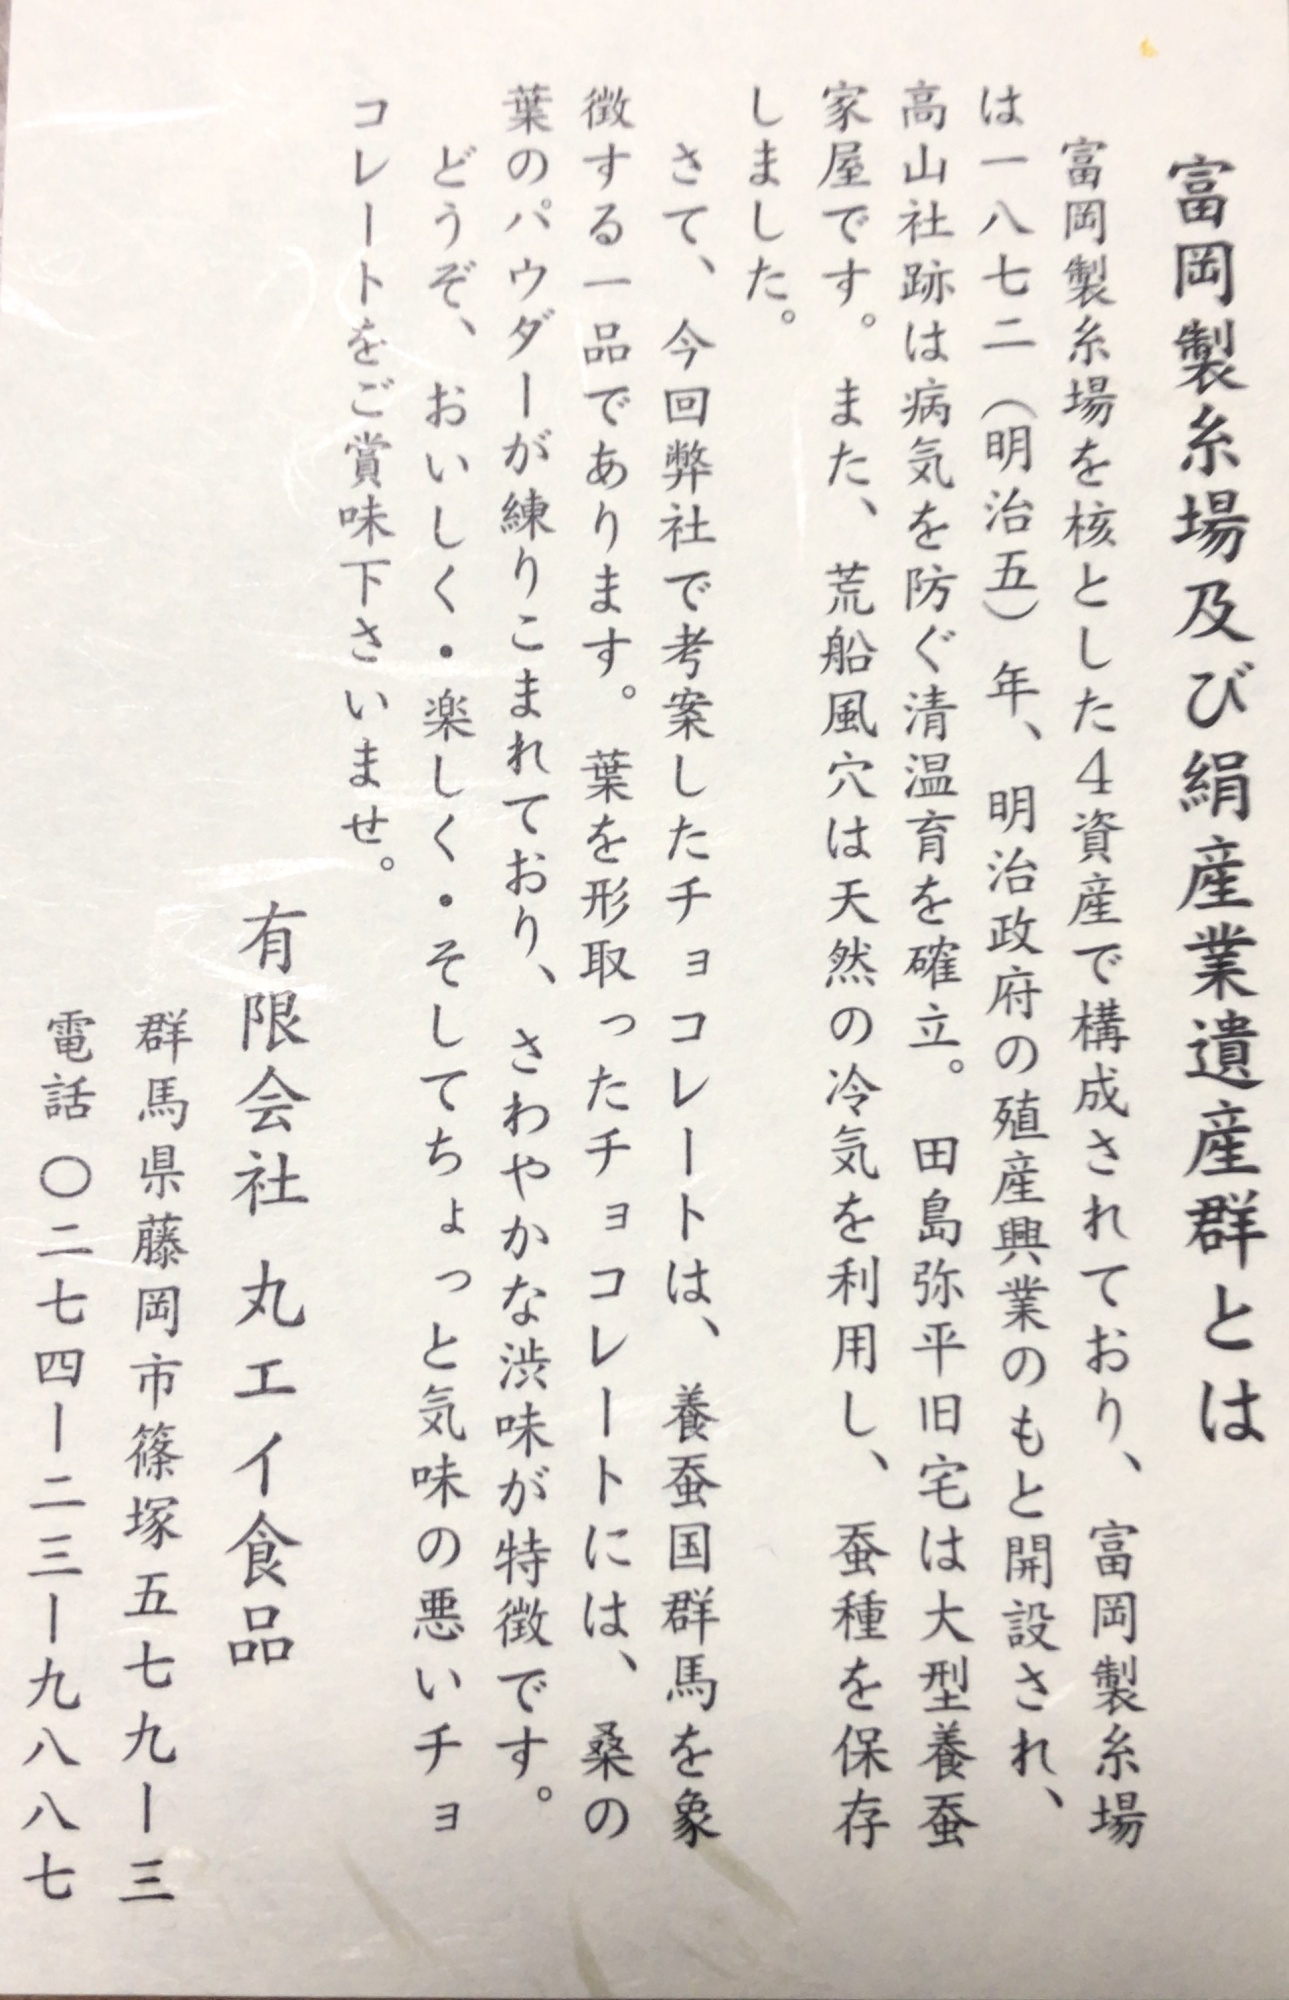 富岡製糸場及び絹産業遺産群とは
富岡製糸場を核とした4資産で構成されており、富岡製糸場
は一八七二(明治五)年、明治政府の殖産興業のもと開設され、
高山社跡は病気を防ぐ清温育を確立。田島弥平旧宅は大型養蚕
家屋です。また、荒船風穴は天然の冷気を利用し、蚕種を保存
しました。
さて、今回弊社で考案したチョコレートは、養蚕国群馬を象
徴する一品であります。葉を形取ったチョコレートには、桑の
葉のパウダーが練りこまれており、さわやかな渋味が特徴です。
どうぞ、おいしく・楽しく・そしてちょっと気味の悪いチョ
コレートをご賞味下さいませ。
有限会社 丸エイ食品
群馬県藤岡市篠塚五七九ー三
電話 〇二七四ー二三ー九八八七